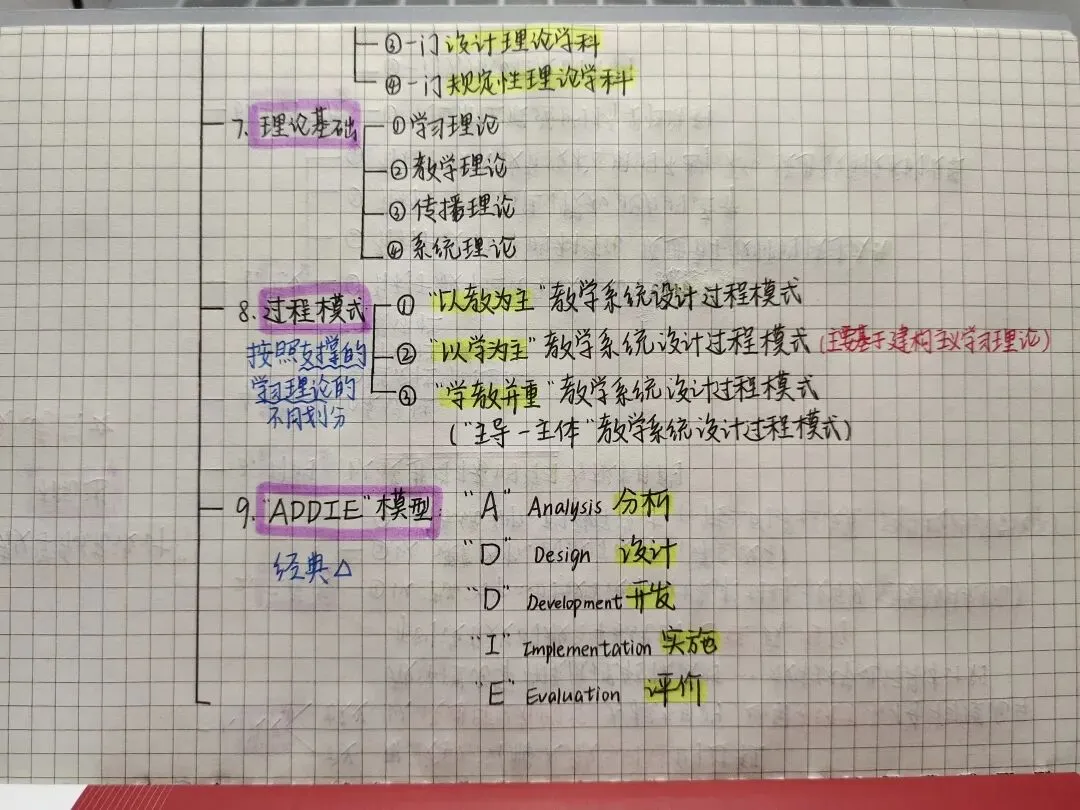 ③一门设计理论学科
④一门规定性理论学科
7. 理论基础
①学习理论
②教学理论
③传播理论
④系统理论
8. 过程模式
按照支撑的
学习理论的
不同划分
① "以教为主"教学系统设计过程模式
② "以学为主"教学系统设计过程模式(主要基于建构主义学习理论)
③ "学教并重"教学系统设计过程模式
("主导-主体"教学系统设计过程模式)
9. "ADDIE"模型:
经典△
"A" Analysis 分析
"D" Design 设计
"D" Development 开发
"I" Implementation 实施
"E" Evaluation 评价